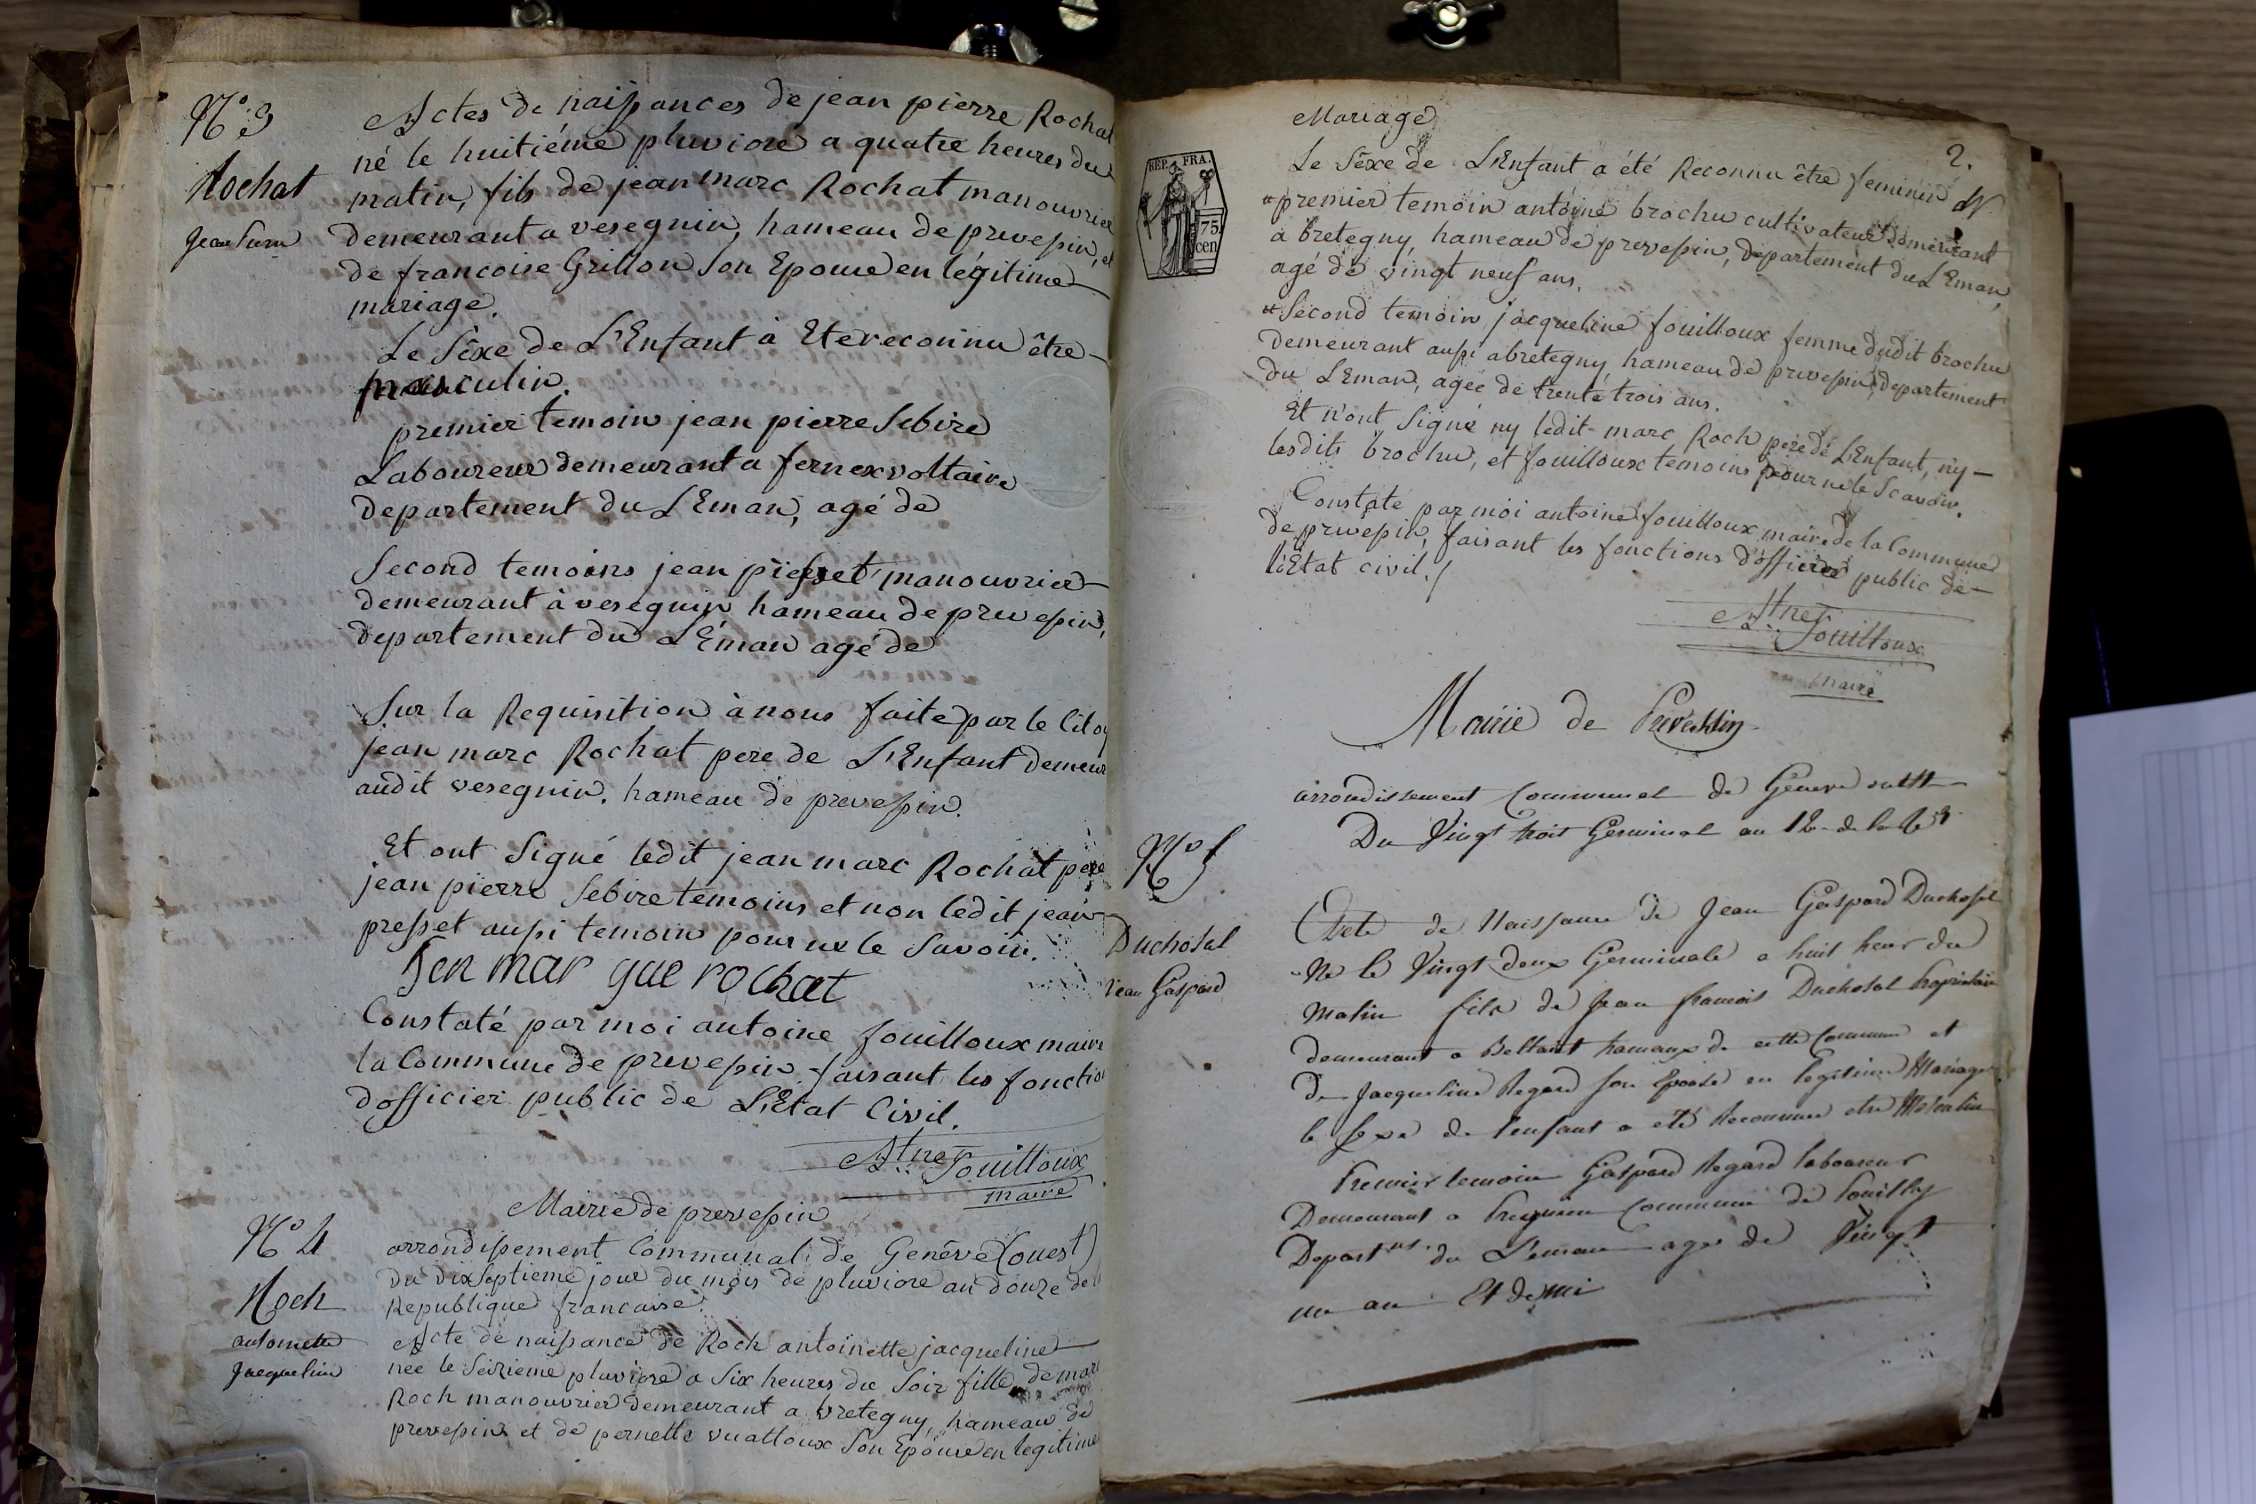 N.º 3
Rochat
jean pierre
Actes de naissances de jean pierre Rochat
né le huitiéme pluviose a quatre heures du
matin, fils de jean marc Rochat manouvrier
demeurant a vesegnin, hameau de prevessin, et
de francoise Grillon son Epouse en légitime
mariage.
Le Séxe de L'Enfant à Ete reconnu être
masculin.
premier temoin jean pierre Sebire
Laboureur demeurant a fernex voltaire
departement du LEman, agé de
Second temoins jean presset manouvrier
demeurant à vesegnin hameau de prevessin,
departement du LEman agé de
Sur la Requisition à nous faite par le Citoy
jean marc Rochat pere de L'Enfant demeur
audit vesegnin. hameau de prevessin.
Et ont Signé ledit jean marc Rochat pere
jean pierre Sebire temoins et non ledit jean
presset aussi temoin pour ne le Savoir.
Jen mar que rochat
Constaté par moi antoine fouilloux maire
la Commune de prevessin, faisant les fonction
d'officier public de L'Etat Civil.
Atne fouilloux
maire
Mairie de prevessin
N.º 4
Roch
antoinette
jacqueline
arrondissement Communal de Genéve (ouest)
du dix Septieme jour du mois de pluviose an douze de l
Republique francaise.
Acte de naissance de Roch antoinette jacqueline
née le Seizieme pluviose a Six heures du Soir fille de marc
Roch manouvrier demeurant a bretegny, hameau de
prevessin et de pernette vuattoux Son Epouse en legitime
Mariage
2.
REP. FRA.
75
cen
Le Séxe de L'Enfant a été Reconnu être feminin
premier temoin antoine brochu cultivateur demeurant
à bretegny, hameau de prevessin, departement du LEman,
agé de vingt neuf ans.
Second temoin jacqueline fouilloux femme dudit brochu
demeurant aussi a bretegny, hameau de prevessin, departement
du LEman, agée de trente trois ans.
Et n'ont Signé ny ledit marc Roch pere de L'Enfant, ny
lesdits brochu, et fouilloux temoins pour ne le Scavoir.
Constaté par moi antoine fouilloux maire de la Commune
de prevessin, faisant les fonctions d'officier public de
l'Etat civil./
Atne fouilloux
maire
Mairie de Prévessin
arrondissement Communal de Geneve
Du Vingt trois Germinal an 12 de la
N.º 5
Duchosal
Jean Gaspard
Acte de Naissance de Jean Gaspard Duchosal
Né le Vingt deux Germinale a huit heur du
Matin fils de Jean francois Duchosal Propriétaire
demeurant a hameaux de cette Commune et
De Jacqueline Regard son Epouse en legitime Mariage
le sexe de l'enfant a eté Reconnue etre Masculin
Premier temoin Gaspard Regard laboureur
Demeurant a Pregnin Commune de Pouilly
Depart.nt du Leman agé de Vingt
un an Et demi